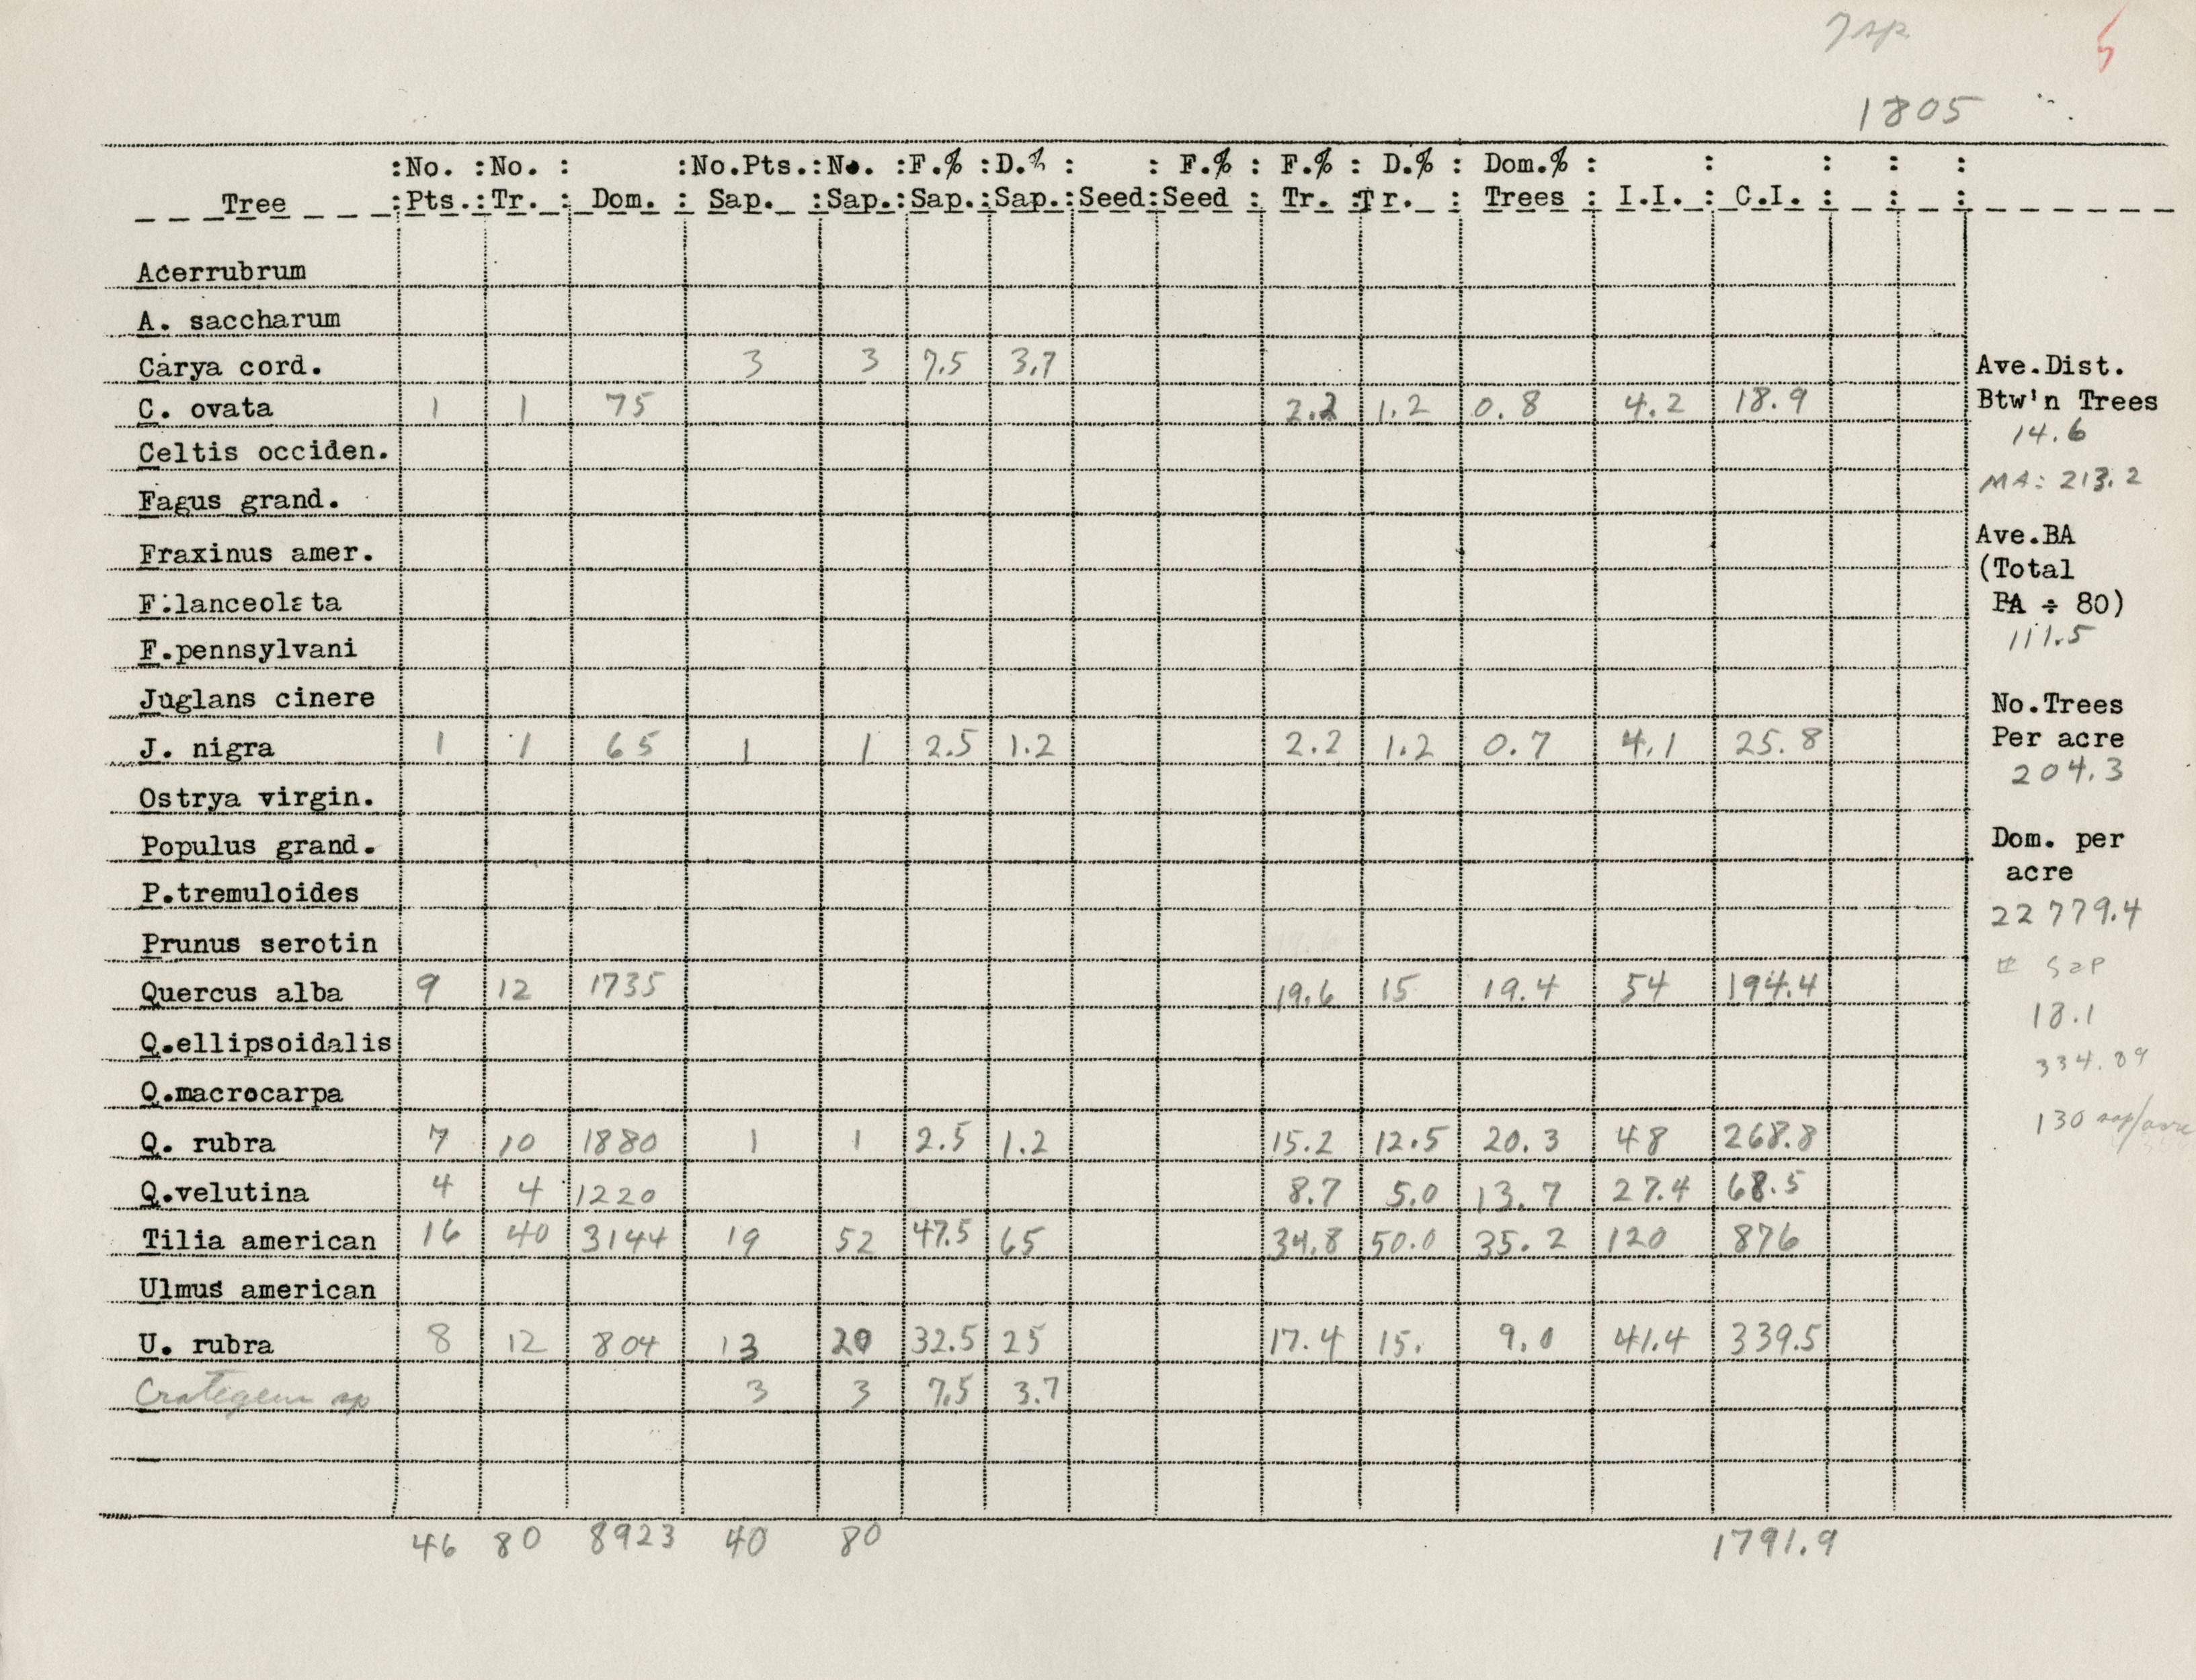 7 sp
5
1805
:No. :No. : :No.Pts.:No. :F.% :D.% : : F.% : F.% : D.% : Dom.% : : : : :
Tree :Pts.:Tr. : Dom. : Sap. :Sap.:Sap.:Sap.:Seed:Seed : Tr. :Tr. : Trees : I.I. : C.I. : : :
Acerrubrum
A. saccharum
Carya cord. 3 3 7.5 3.7
C. ovata 1 1 75 2.2 1.2 0.8 4.2 18.9
Celtis occiden.
Fagus grand.
Fraxinus amer.
F.lanceolata
F.pennsylvani
Juglans cinere
J. nigra 1 1 65 1 1 2.5 1.2 2.2 1.2 0.7 4.1 25.8
Ostrya virgin.
Populus grand.
P.tremuloides
Prunus serotin
Quercus alba 9 12 1735 19.6 15 19.4 54 194.4
Q.ellipsoidalis
Q.macrocarpa
Q. rubra 7 10 1880 1 1 2.5 1.2 15.2 12.5 20.3 48 268.8
Q.velutina 4 4 1220 8.7 5.0 13.7 27.4 68.5
Tilia american 16 40 3144 19 52 47.5 65 34.8 50.0 35.2 120 876
Ulmus american
U. rubra 8 12 804 13 20 32.5 25 17.4 15. 9.0 41.4 339.5
Crategeus sp 3 3 7.5 3.7
46 80 8923 40 80 1791.9
Ave.Dist.
Btw'n Trees
14.6
MA: 213.2
Ave.BA
(Total
BA ÷ 80)
111.5
No.Trees
Per acre
204.3
Dom. per
acre
22779.4
# Sap
18.1
334.89
130 sap/acre